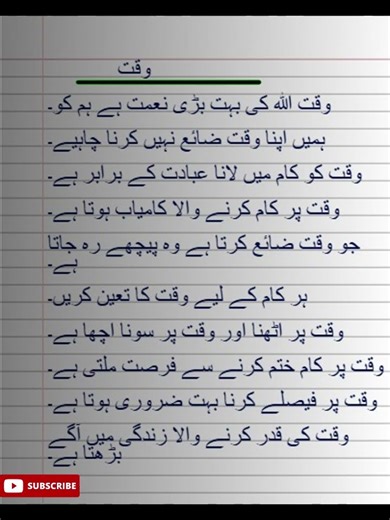 وقت
وقت اللہ کی بہت بڑی نعمت ہے ہم کو۔
ہمیں اپنا وقت ضائع نہیں کرنا چاہیے۔
وقت کو کام میں لانا عبادت کے برابر ہے۔
وقت پر کام کرنے والا کامیاب ہوتا ہے۔
جو وقت ضائع کرتا ہے وہ پیچھے رہ جاتا
ہے۔
ہر کام کے لیے وقت کا تعین کریں۔
وقت پر اٹھنا اور وقت پر سونا اچھا ہے۔
وقت پر کام ختم کرنے سے فرصت ملتی ہے۔
وقت پر فیصلے کرنا بہت ضروری ہوتا ہے۔
وقت کی قدر کرنے والا زندگی میں آگے
بڑھتا ہے۔
SUBSCRIBE